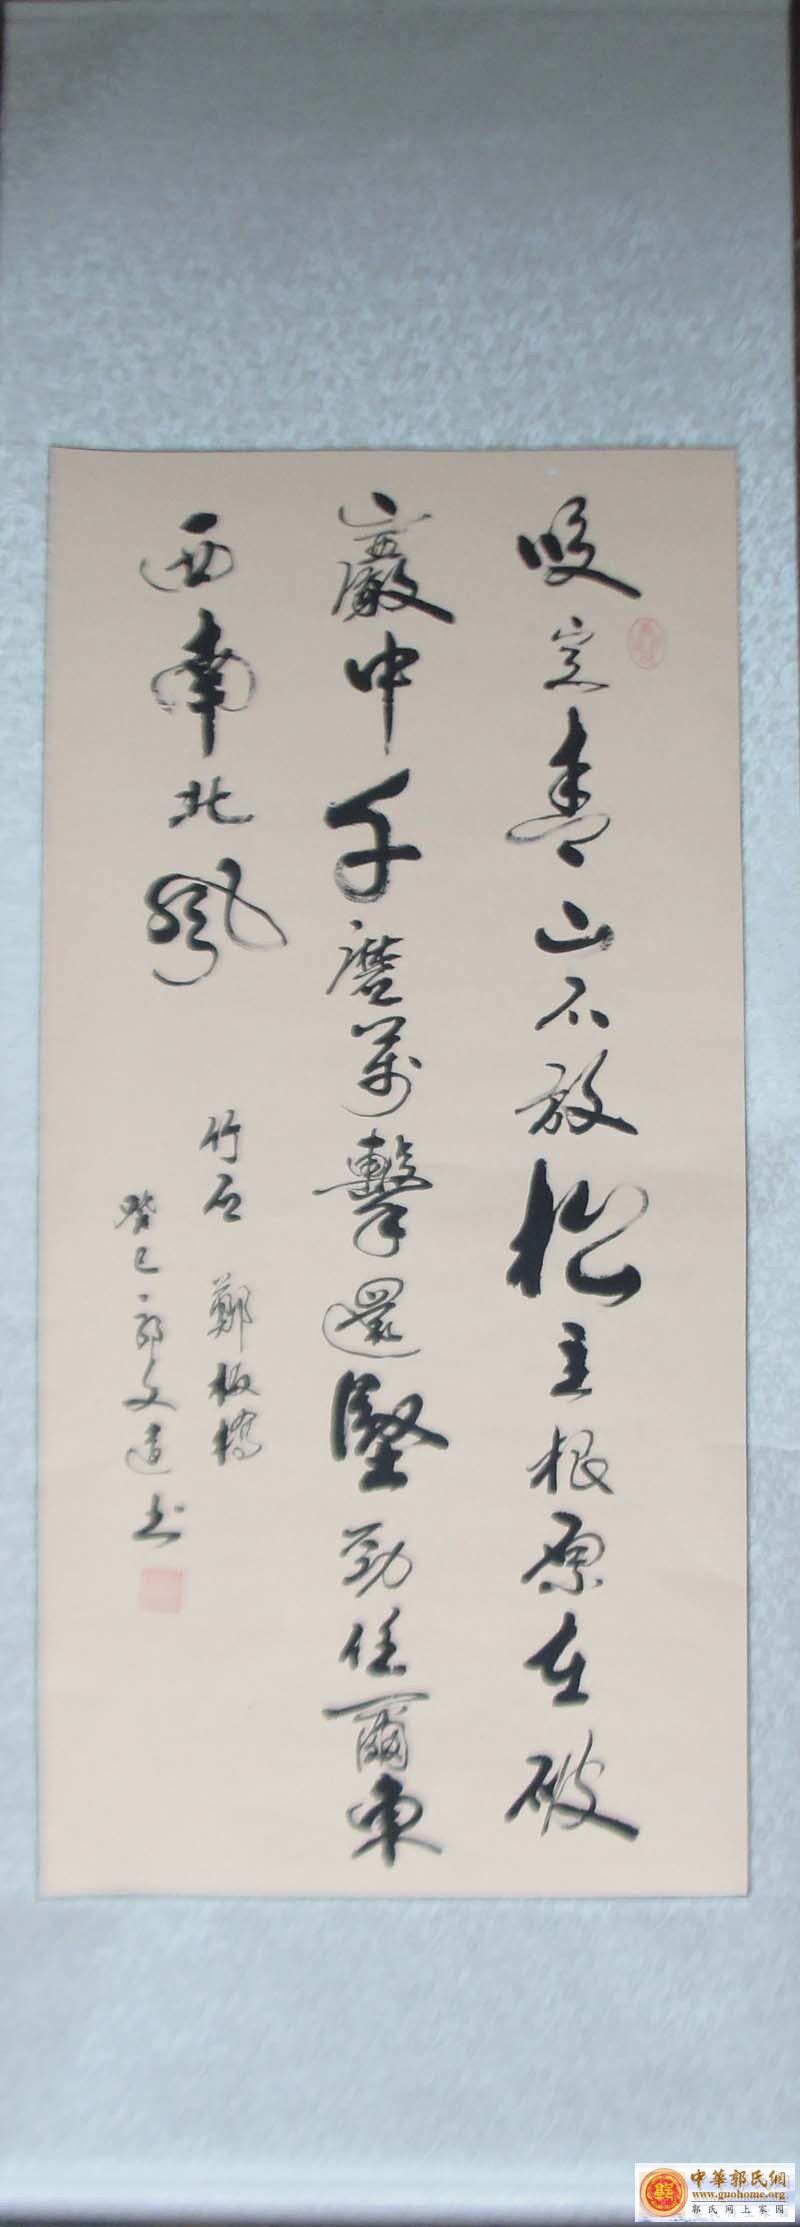 咬定青山不放松主根原在破
巖中千磨萬擊還堅勁任爾東
西南北風
竹石 鄭板橋
癸巳郭文道书
中華郭氏網
www.guohome.org
郭氏网上家园